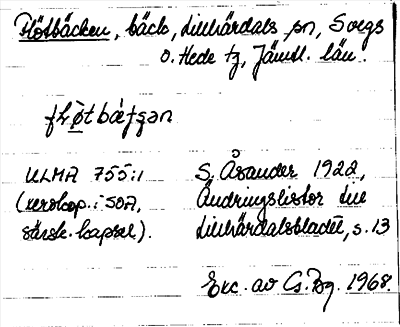 Flötbäcken, bäck, Lillhärdals sn, Svegs
o. Hede tg, Jämtl. län.
ULMA 755:1
(xerokop. i SOA,
särsk. kapsel).
S. Åsander 1922,
Ändringslistor till
Lillhärdalsbladet, s. 13
Exc. av Cs. Bg. 1968.